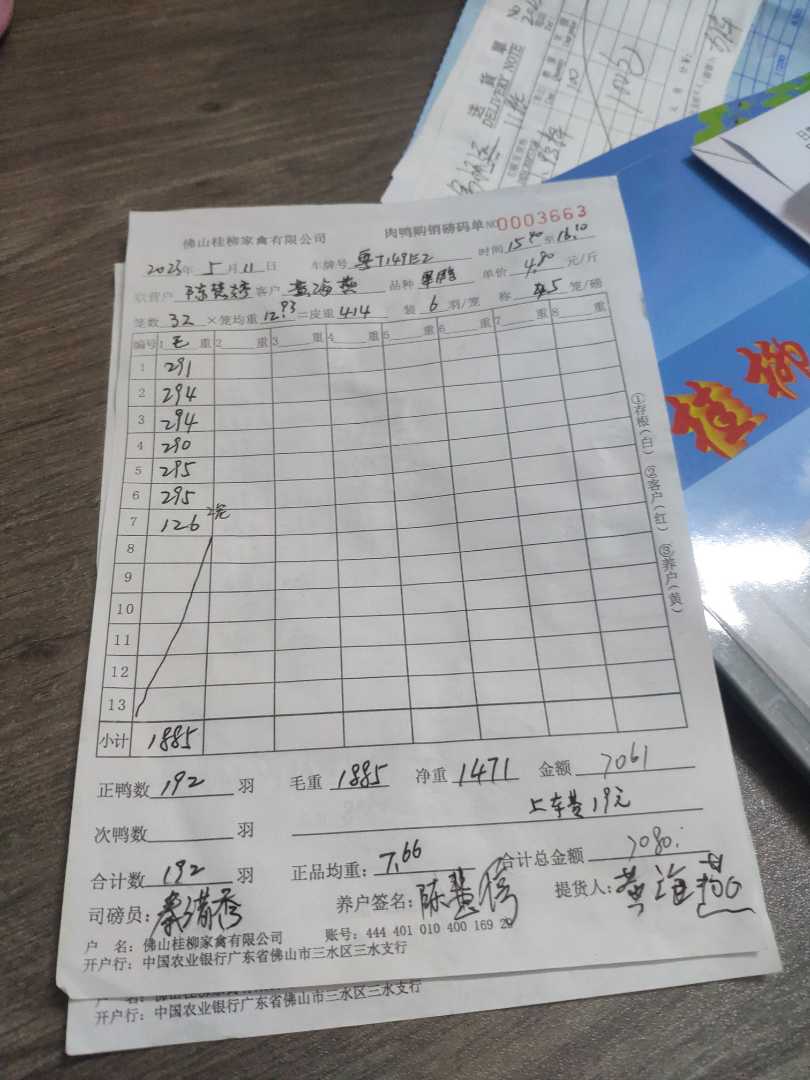 送货单
DELIVERY NOTE
No
佛山桂柳家禽有限公司 肉鸭购销磅码单 NO 0003663
2023年 5月 11日 车牌号 粤T149E2 时间 15:40 至 16:10
联营户 客户 黄海燕 品种 单价 4.80 元/斤
笼数 32 ×笼均重 12.93 =皮重 414 装 6 羽/笼 称 5 笼/磅
编号 1 毛 重 2 重 3 重 4 重 5 重 6 重 7 重 8 重
1 291
2 294
3 294
4 290
5 295
6 295
7 126 2笼
8
9
10
11
12
13
小计 1885
①存根(白) ②客户(红) ③养户(黄)
正鸭数 192 羽 毛重 1885 净重 1471 金额 7061
次鸭数 羽 上车费19元
合计数 192 羽 正品均重: 7.66 合计总金额 7080.
司磅员: 秦满秀 养户签名: 提货人: 黄海燕
户 名: 佛山桂柳家禽有限公司 账号: 444 401 010 400 169 29
开户行: 中国农业银行广东省佛山市三水区三水支行
开户行: 中国农业银行广东省佛山市三水区三水支行
桂柳